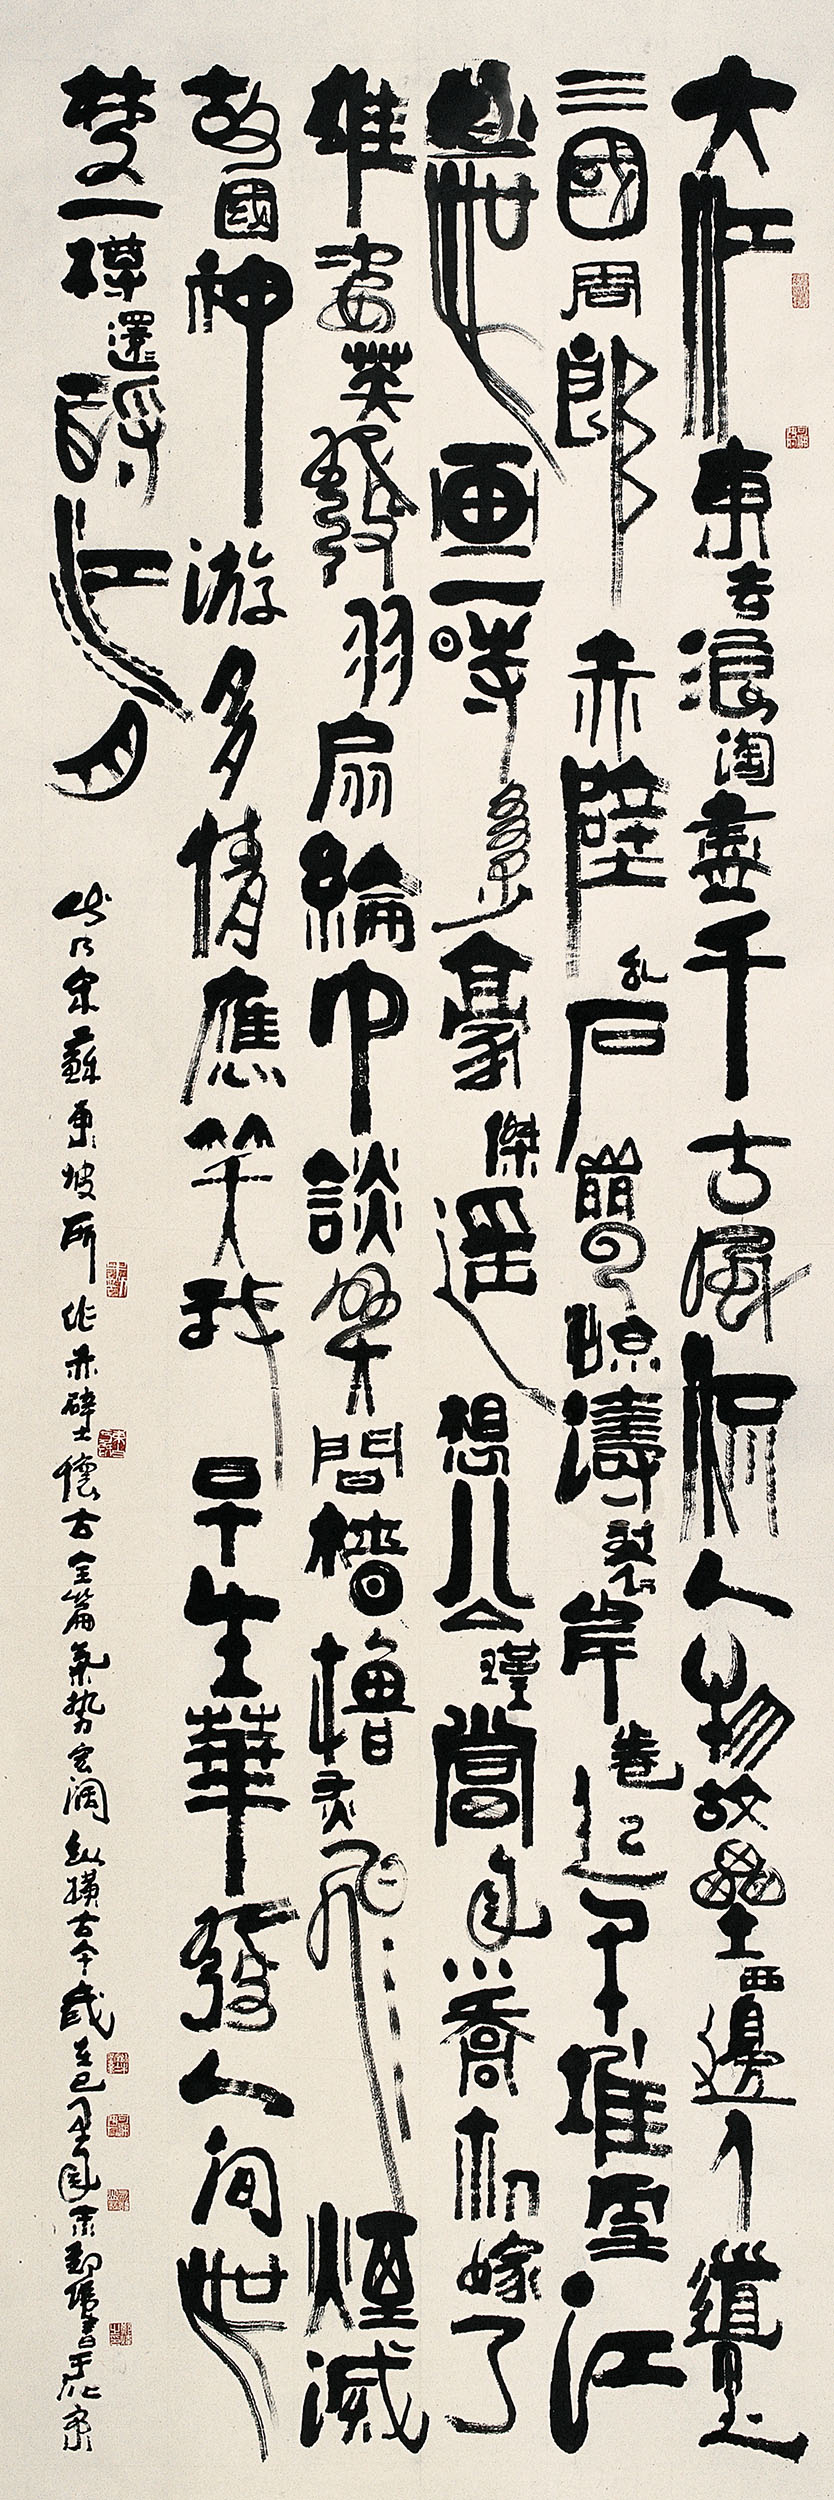 大江東去浪淘盡千古風流人物故壘西邊人道是
三國周郎赤壁乱石崩雲驚濤裂岸卷起千堆雪江
山如画一時多少豪傑遥想公瑾當年小喬初嫁了
雄姿英發羽扇綸巾談笑間檣櫓灰飛煙滅
故國神游多情應笑我早生華發人間如
夢一樽還酹江月
此乃宋蘇東坡所作赤壁懷古全篇氣勢宏阔纵橫古今歲在己丑書于北京